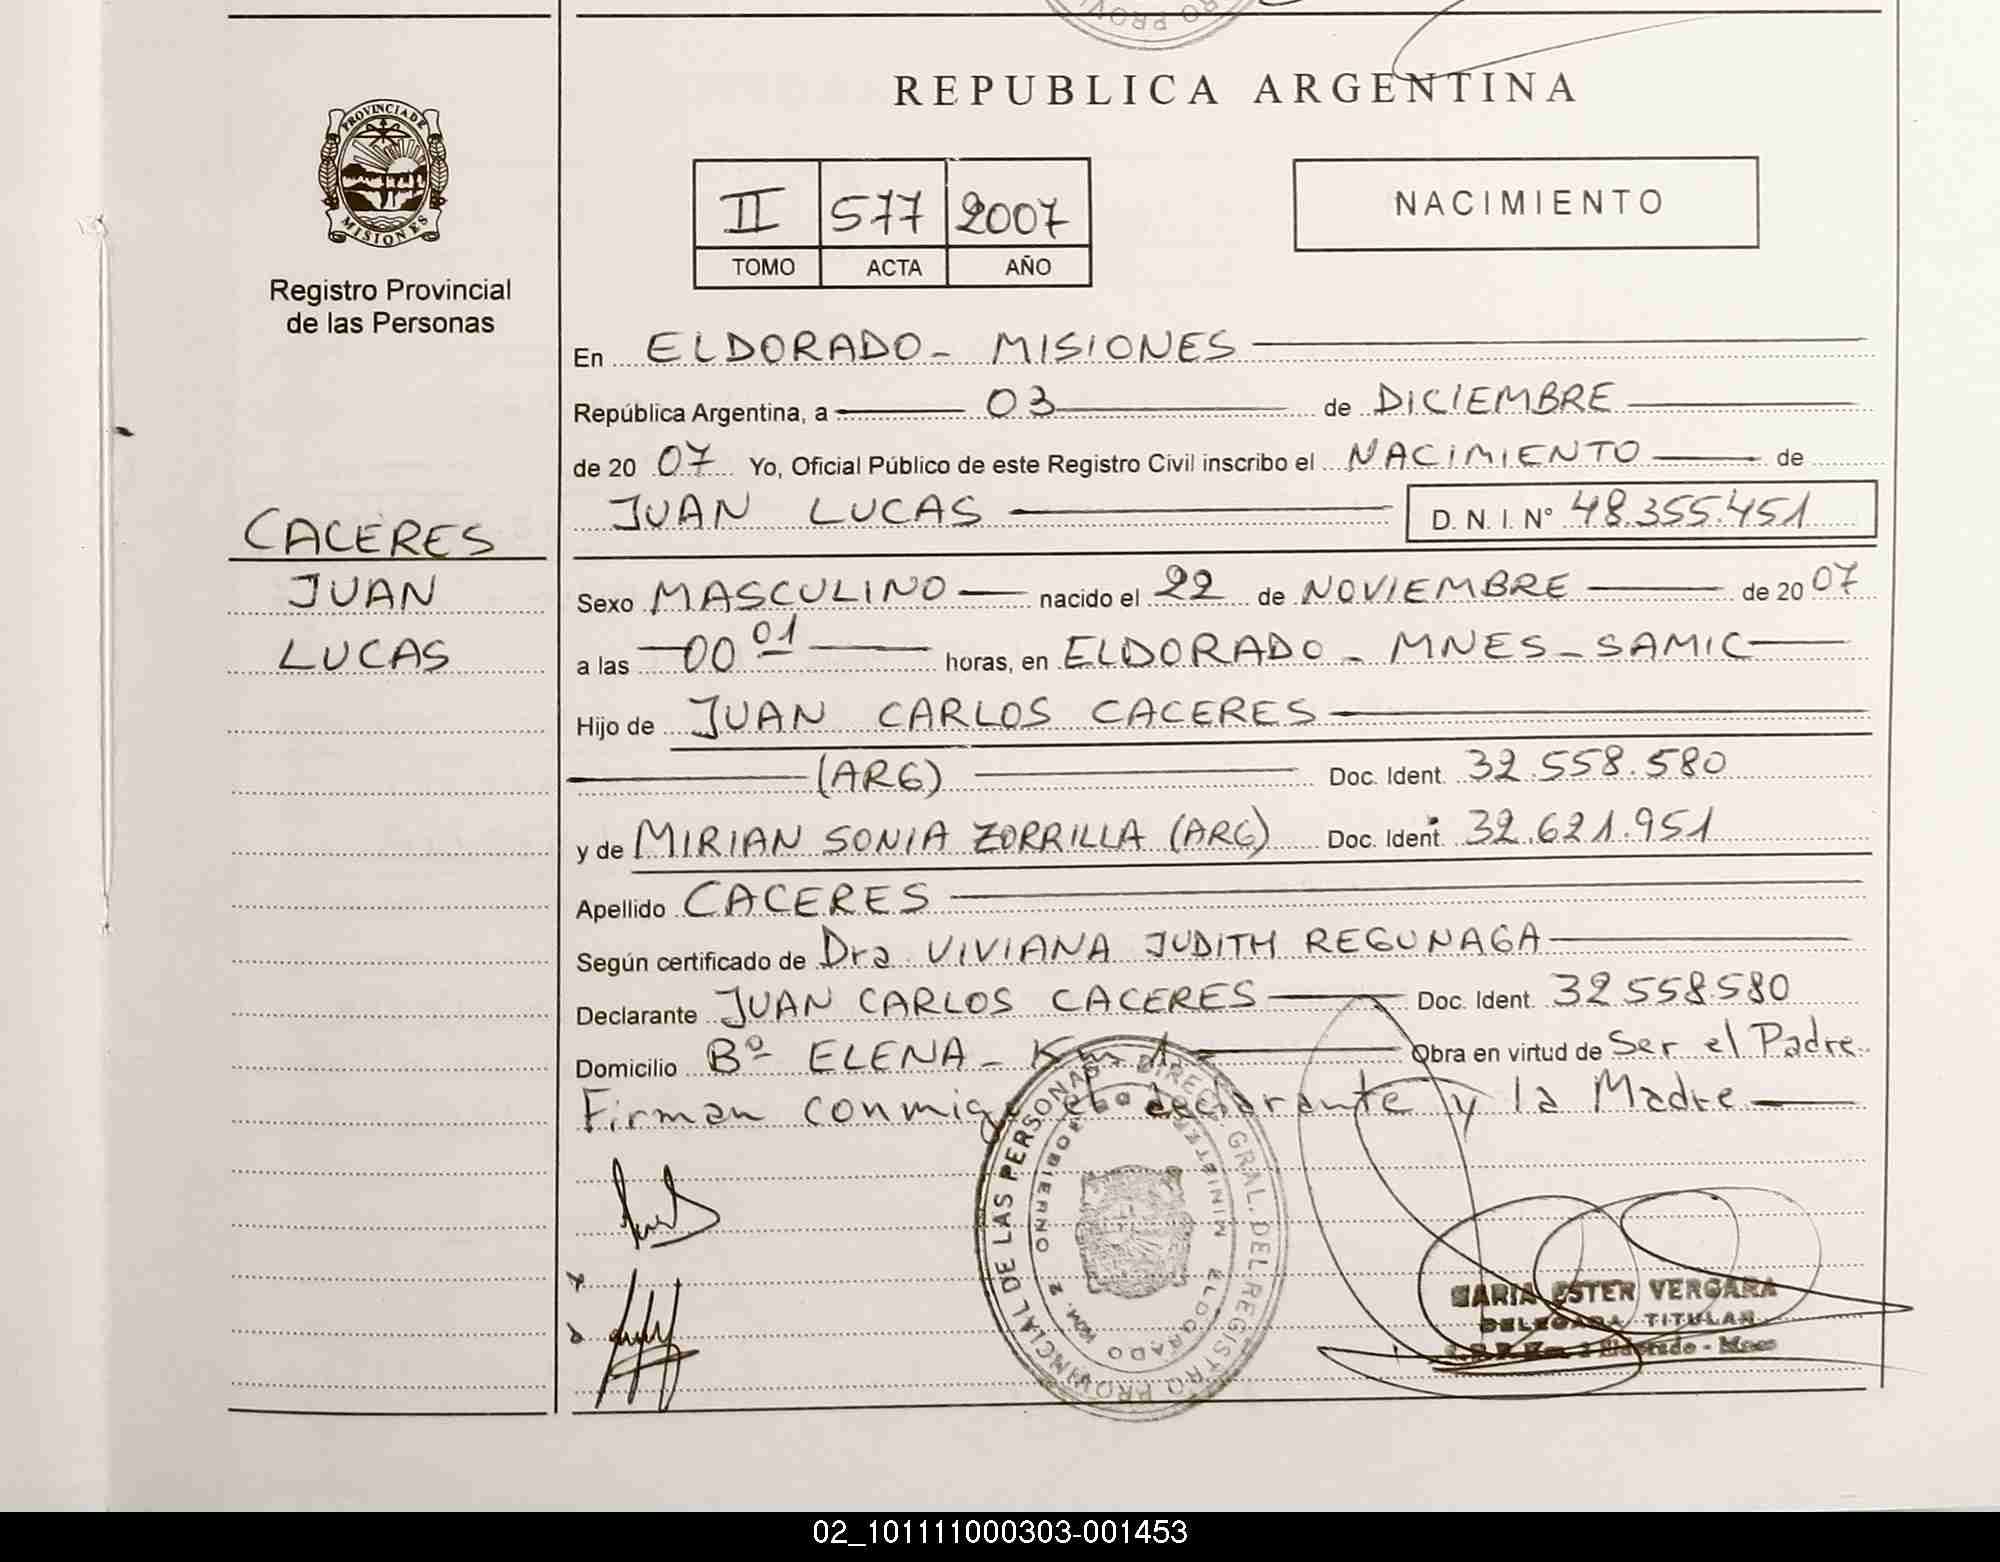 REPUBLICA ARGENTINA
PROVINCIA DE
MISIONES
Registro Provincial
de las Personas
II 577 2007
TOMO ACTA AÑO
NACIMIENTO
En ELDORADO - MISIONES
República Argentina, a 03 de DICIEMBRE
de 20 07 Yo, Oficial Público de este Registro Civil inscribo el NACIMIENTO de
JUAN LUCAS D. N. I. N° 48.355.451
CACERES
JUAN
LUCAS
Sexo MASCULINO nacido el 22 de NOVIEMBRE de 20 07
a las 00 01 horas, en ELDORADO - MNES - SAMIC
Hijo de JUAN CARLOS CACERES
(ARG) Doc. Ident. 32.558.580
y de MIRIAN SONIA ZORRILLA (ARG) Doc. Ident. 32.621.951
Apellido CACERES
Según certificado de Dra VIVIANA JUDITH REGUNAGA
Declarante JUAN CARLOS CACERES Doc. Ident. 32558580
Domicilio Bº ELENA - Km 1 Obra en virtud de Ser el Padre
Firman conmigo el declarante y la Madre
DIREC. GRAL. DEL REGISTRO PROVINCIAL DE LAS PERSONAS
ELDORADO KM. 2
GOBIERNO
MARIA ESTER VERGARA
DELEGADA TITULAR
Km. 2 Eldorado - Mnes
02_101111000303-001453